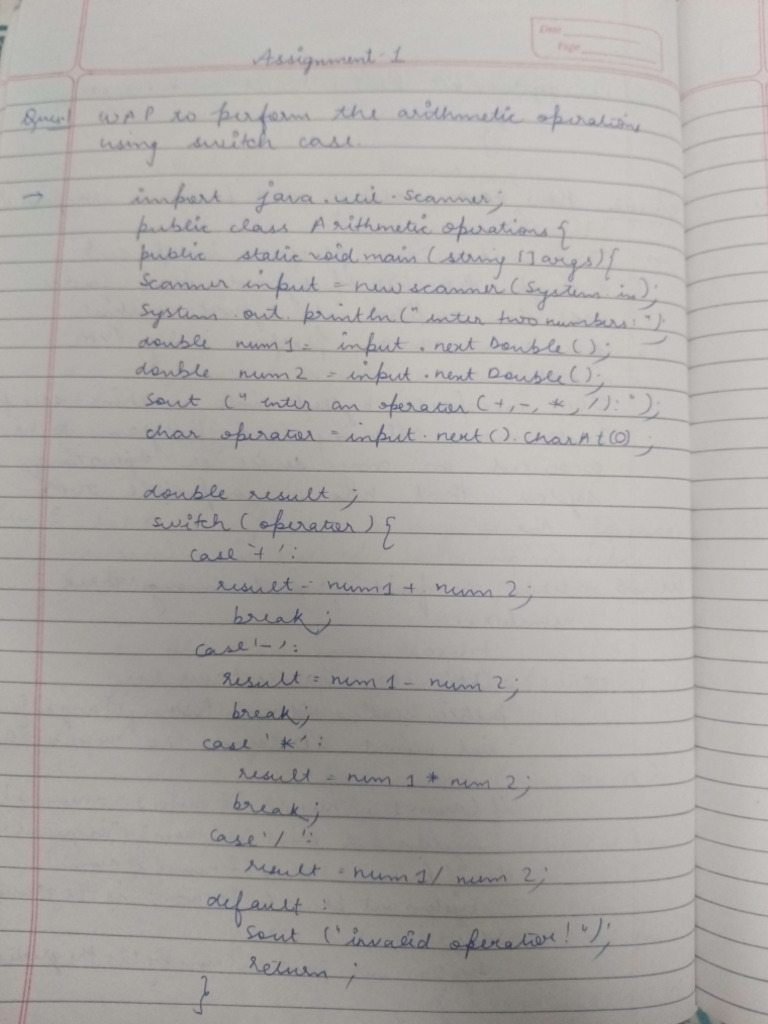 Date
Page
Assignment-1
Ques1 WAP to perform the arithmetic operations
using switch case.
→ import java.util.scanner;
public class Arithmetic operations {
public static void main (string [] args) {
Scanner input = new scanner (System.in);
System.out.println ("enter two numbers:");
double num1 = input.next Double ();
double num 2 = input.next Double ();
Sout ("enter an operator (+,-,*,/):");
char operator = input.next().charAt(0);
double result;
switch (operator) {
case '+':
result = num1 + num 2;
break;
case '-':
result = num 1 - num 2;
break;
case '*':
result = num 1 * num 2;
break;
case '/':
result = num 1 / num 2;
default:
Sout ("invalid operator!");
return;
}